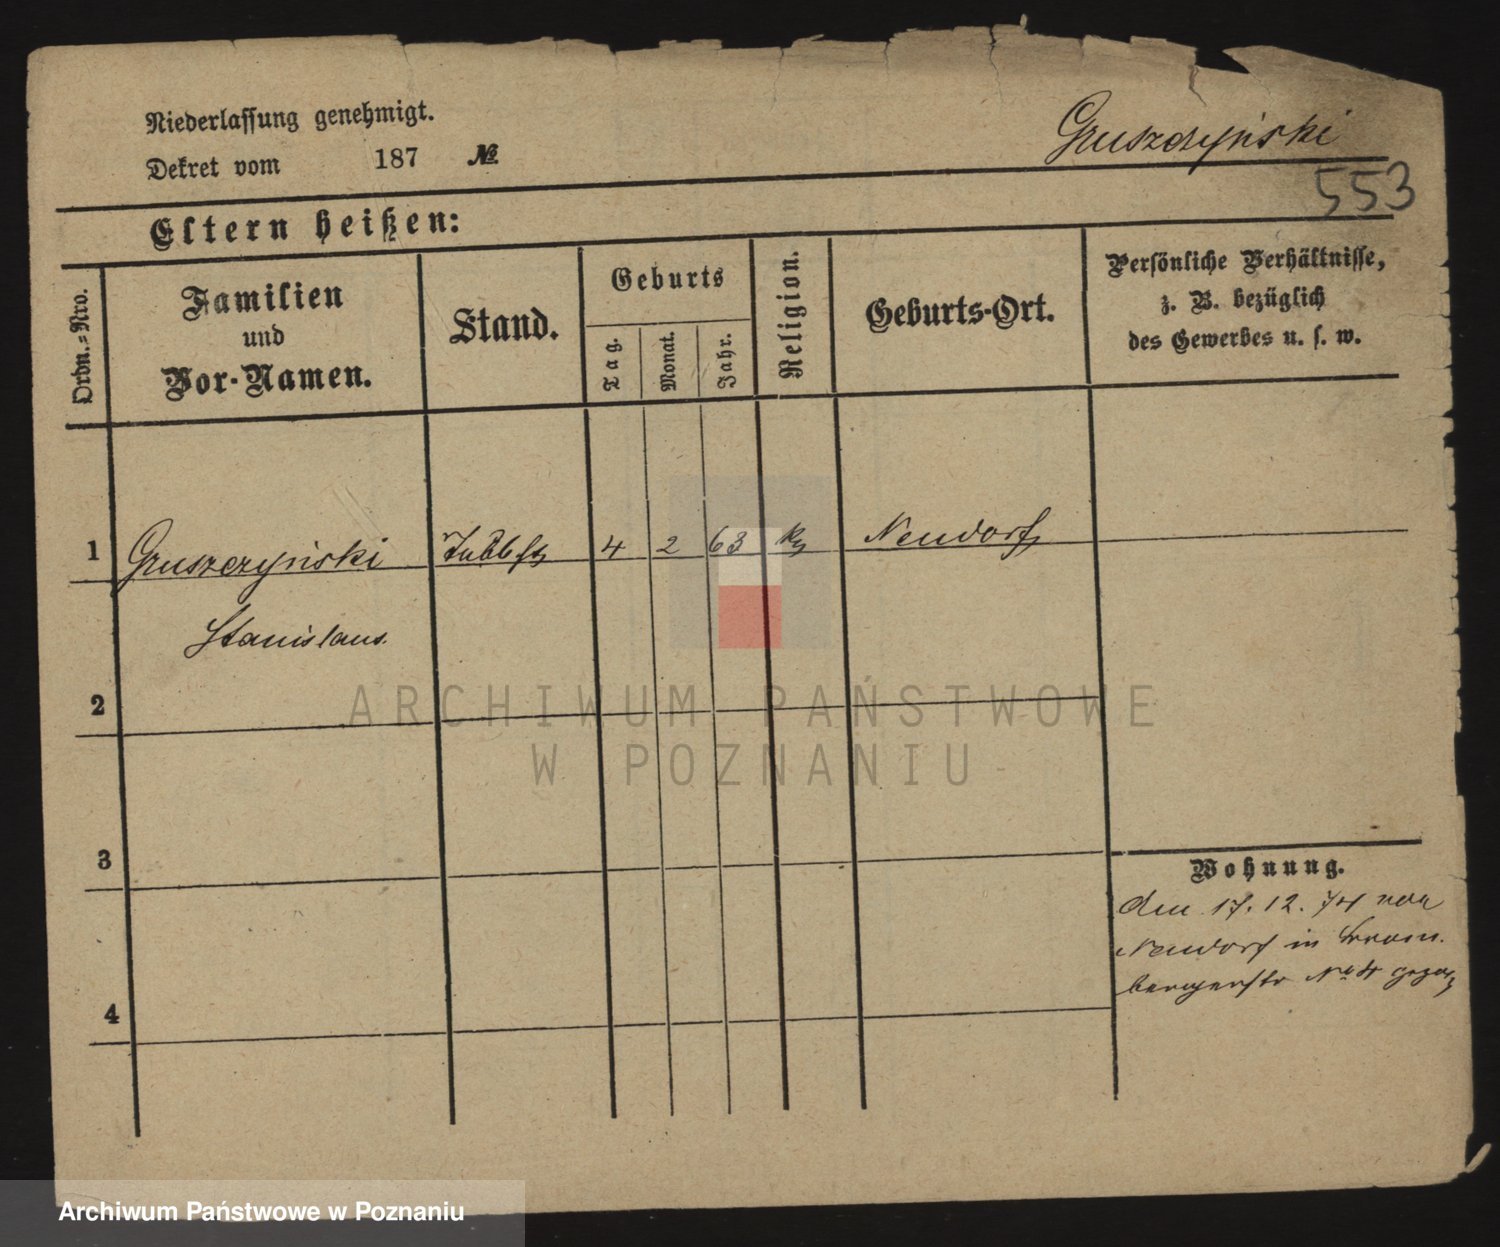 Niederlassung genehmigt.
Dekret vom 187 №
Gruszczyński
553
Eltern heißen:
Ordn.-Nro.
Familien
und
Vor-Namen.
Stand.
Geburts
Tag.
Monat.
Jahr.
Religion.
Geburts-Ort.
Persönliche Verhältnisse,
z. B. bezüglich
des Gewerbes u. s. w.
1 Gruszczyński 4 2 63 Neudorf
Stanislaus
2
3
4
Wohnung.
den 17. 12. 74 von
Neudorf in Brom-
bergerstr No 4
ARCHIWUM PAŃSTWOWE
W POZNANIU
Archiwum Państwowe w Poznaniu